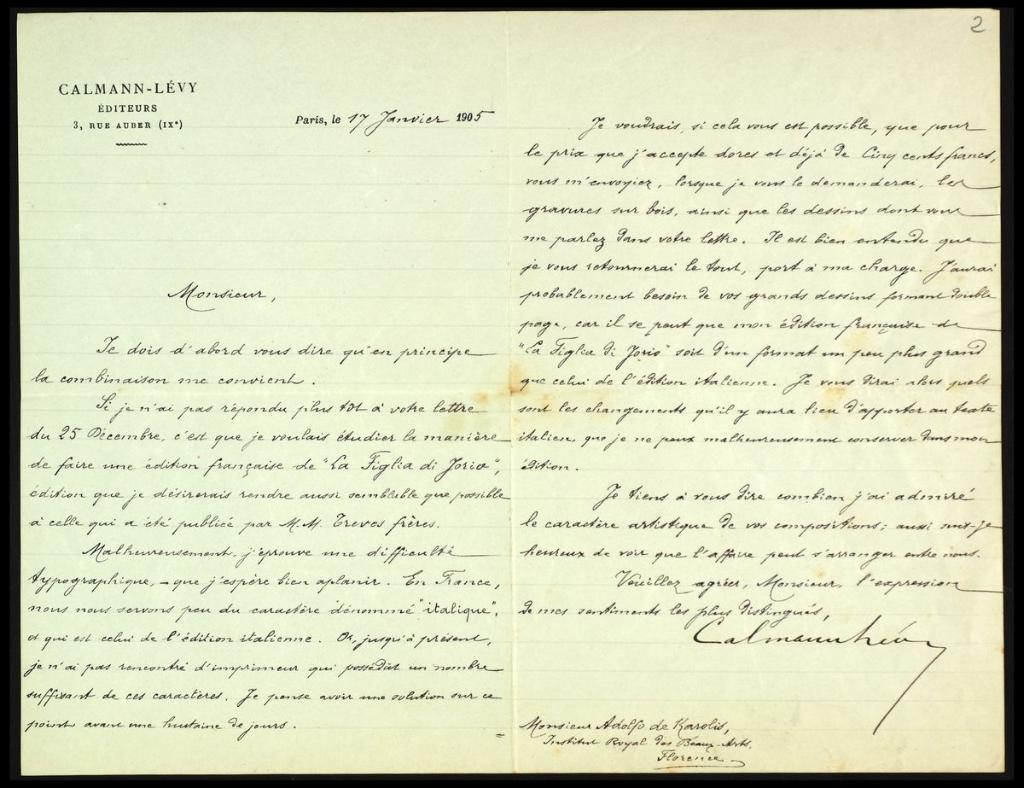 2
CALMANN-LÉVY
ÉDITEURS
3, RUE AUBER (IXe)
Paris, le 17 Janvier 1905
Monsieur,
Je dois d'abord vous dire qu'en principe
la combinaison me convient.
Si je n'ai pas répondu plus tôt à votre lettre
du 25 Décembre, c'est que je voulais étudier la manière
de faire une édition française de "La Figlia di Jorio",
édition que je désirerais rendre aussi semblable que possible
à celle qui a été publiée par M.M. Treves frères.
Malheureusement, j'éprouve une difficulté
typographique, – que j'espère bien aplanir. En France,
nous nous servons peu du caractère dénommé "italique",
et qui est celui de l'édition italienne. Or, jusqu'à présent,
je n'ai pas rencontré d'imprimeur qui possédât un nombre
suffisant de ces caractères. Je pense avoir une solution sur ce
point avant une huitaine de jours.
Je voudrais, si cela vous est possible, que pour
le prix que j'accepte dores et déjà de Cinq cents francs,
vous m'envoyiez, lorsque je vous le demanderai, les
gravures sur bois, ainsi que les dessins dont vous
me parlez dans votre lettre. Il est bien entendu que
je vous retournerai le tout, port à ma charge. J'aurai
probablement besoin de vos grands dessins formant double
page, car il se peut que mon édition française de
"La Figlia di Jorio" soit d'un format un peu plus grand
que celui de l'édition italienne. Je vous dirai alors quels
sont les changements qu'il y aura lieu d'apporter au texte
italien, que je ne peux malheureusement conserver dans mon
édition.
Je tiens à vous dire combien j'ai admiré
le caractère artistique de vos compositions; aussi suis-je
heureux de voir que l'affaire peut s'arranger entre nous.
Veuillez agréer, Monsieur, l'expression
de mes sentiments les plus distingués,
Calmann Lévy
Monsieur Adolfo de Karolis,
Institut Royal des Beaux-Arts.
Florence